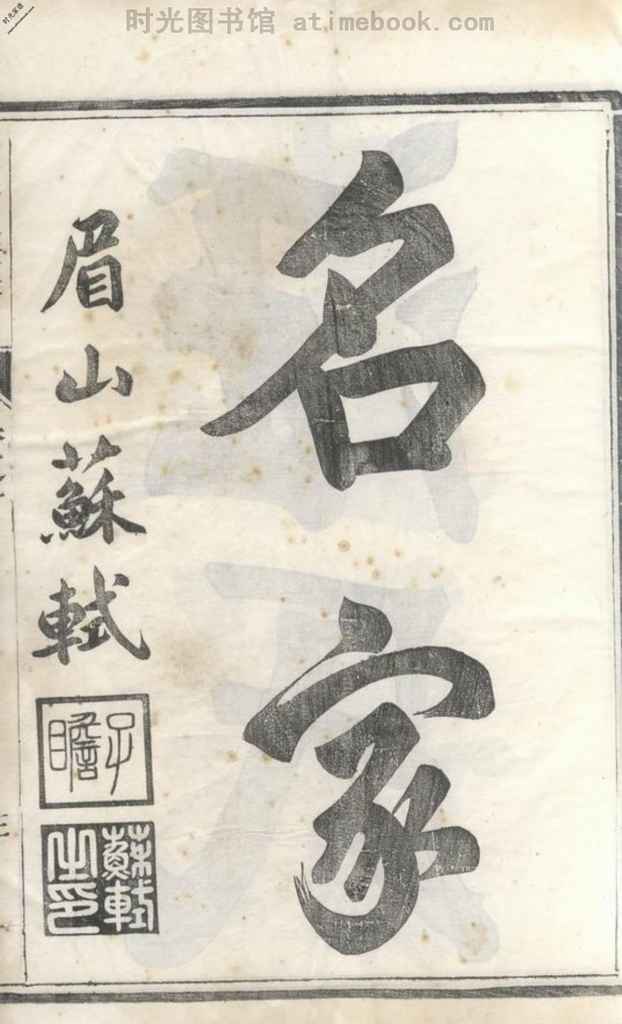 时光家谱
时光图书馆 atimebook.com
名家
眉山蘇軾
子瞻
蘇軾之印